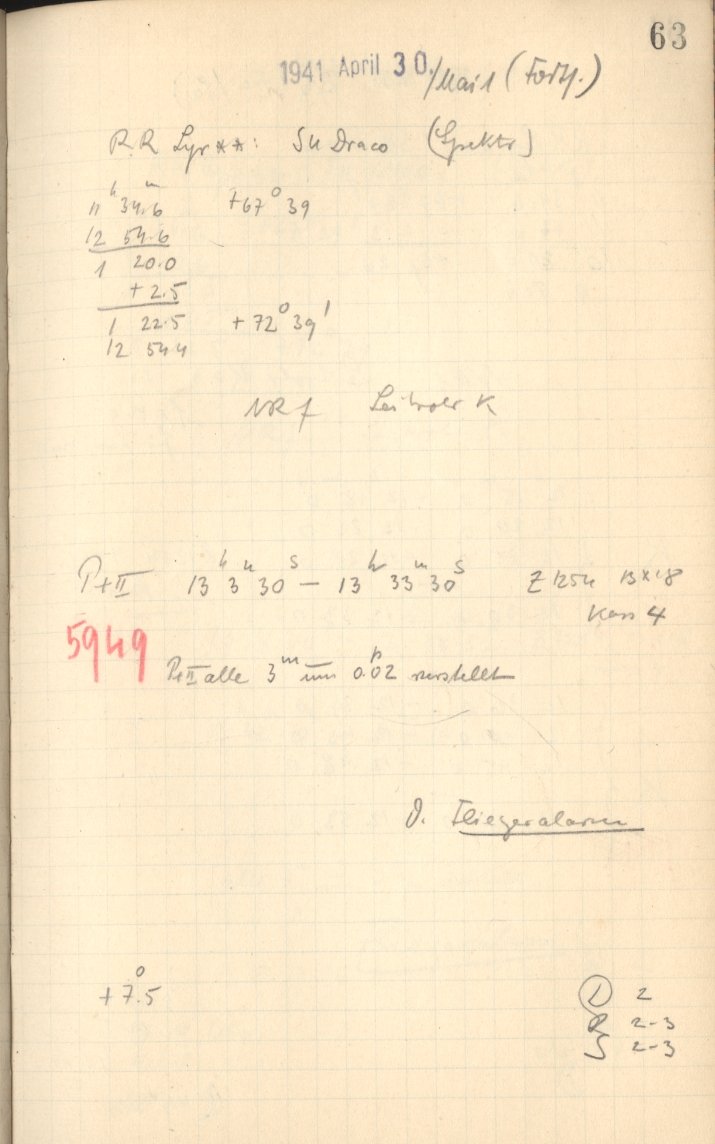 63
1941 April 30./Mai 1 (Forts.)
RR Lyr **: SU Draco (Spektr)
11ʰ 34.6ᵐ +67° 39
12 54.6
1 20.0
+ 2.5
1 22.5 +72° 39'
12 54.4
NRf K
Pt II 13ʰ 3ᵐ 30ˢ – 13ʰ 33ᵐ 30ˢ Z 1254 13×18
Kass 4
5949
Pt II alle 3ᵐ um 0.02ᵖ verstellt
D. Fliegeralarm
+ 7.5°
D 2
R 2-3
S 2-3